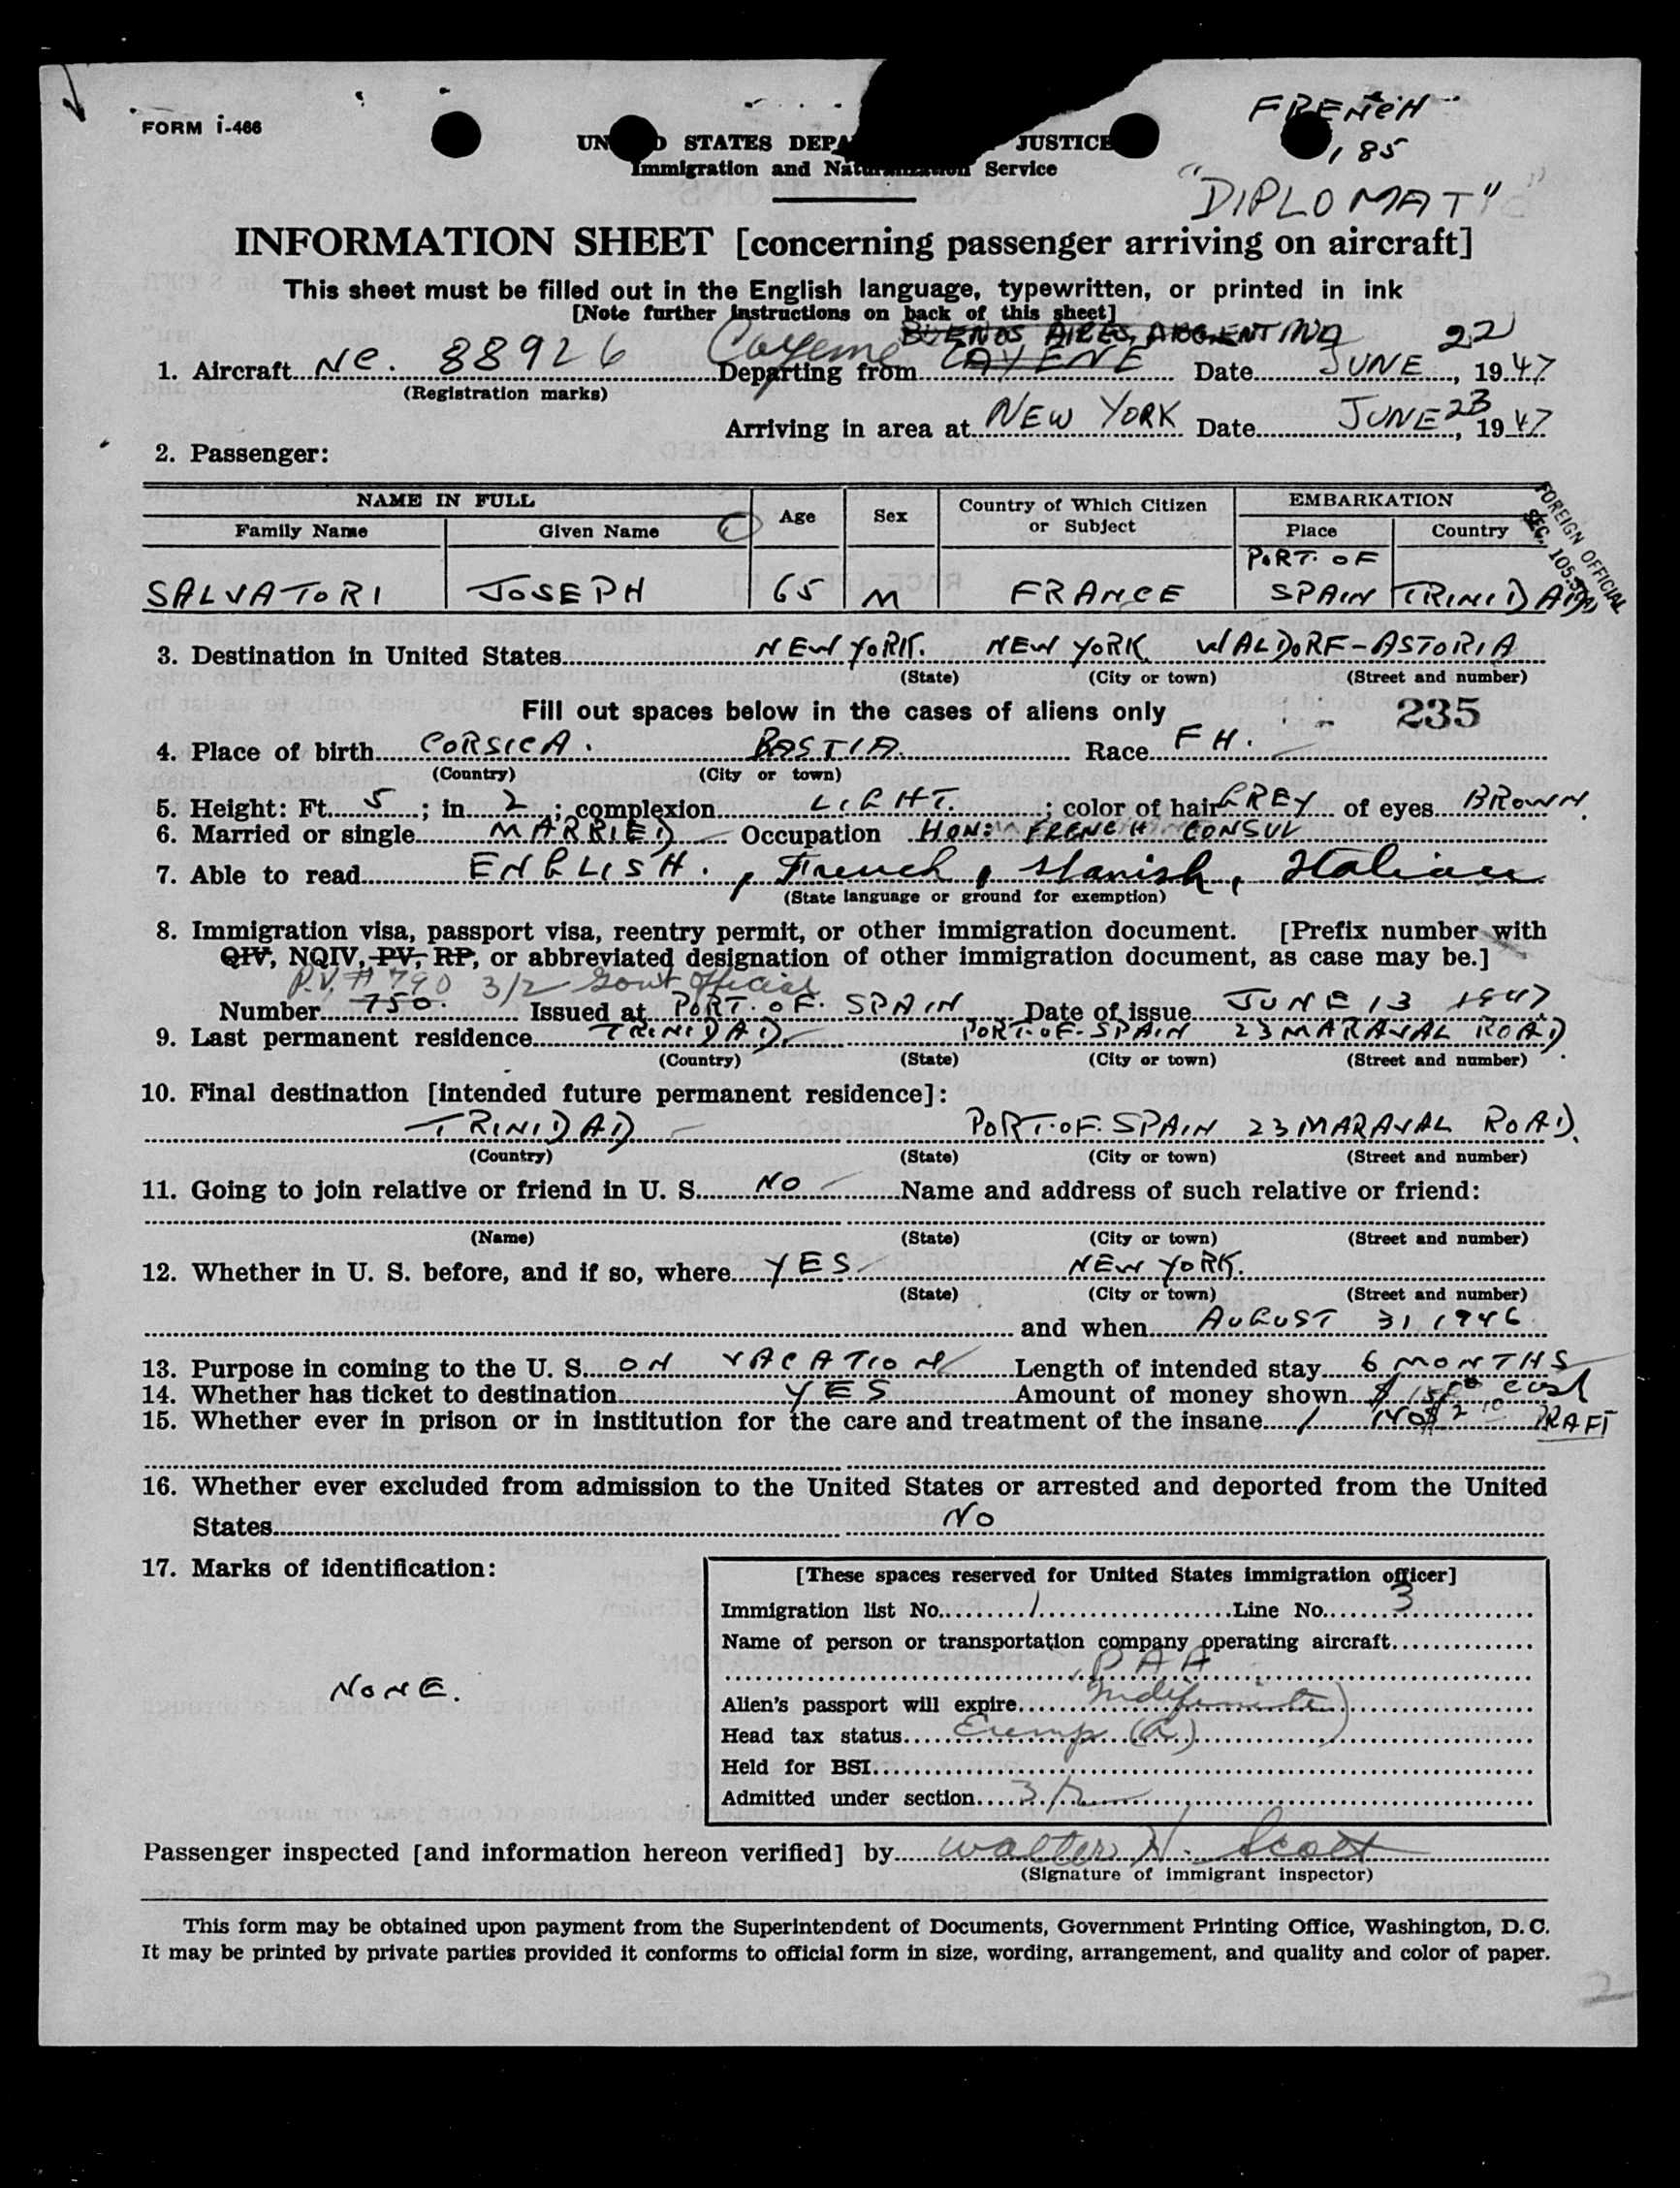 FORM I-466
FRENCH
185
"DIPLOMAT"
UN D STATES DEPA JUSTICE
Immigration and Naturalization Service
INFORMATION SHEET [concerning passenger arriving on aircraft]
This sheet must be filled out in the English language, typewritten, or printed in ink
[Note further instructions on back of this sheet]
BUENOS AIRES, ARGENTINA
1. Aircraft NC. 88926 Departing from CAYENE Date JUNE 22, 1947
(Registration marks)
Arriving in area at NEW YORK Date JUNE 23, 1947
2. Passenger:
NAME IN FULL Age Sex Country of Which Citizen or Subject EMBARKATION
Family Name Given Name Place Country
SALVATORI JOSEPH 65 M FRANCE PORT. OF SPAIN TRINIDAD
FOREIGN OFFICIAL
SEC. 105.3
3. Destination in United States NEW YORK. NEW YORK WALDORF-ASTORIA
(State) (City or town) (Street and number)
Fill out spaces below in the cases of aliens only 235
4. Place of birth CORSICA. BASTIA. Race FH.
(Country) (City or town)
5. Height: Ft. 5; in. 2; complexion LIGHT.; color of hair GREY of eyes BROWN.
6. Married or single MARRIED Occupation HON: FRENCH CONSUL
7. Able to read ENGLISH., French, Spanish, Italian
(State language or ground for exemption)
8. Immigration visa, passport visa, reentry permit, or other immigration document. [Prefix number with
QIV, NQIV, PV, RP, or abbreviated designation of other immigration document, as case may be.]
P.V. # 790 3/2 Govt Official
Number 750. Issued at PORT. OF. SPAIN Date of issue JUNE 13 1947
9. Last permanent residence TRINIDAD. PORT. OF. SPAIN 23 MARAVAL ROAD.
(Country) (State) (City or town) (Street and number)
10. Final destination [intended future permanent residence]:
TRINIDAD PORT. OF. SPAIN 23 MARAVAL ROAD.
(Country) (State) (City or town) (Street and number)
11. Going to join relative or friend in U. S. NO Name and address of such relative or friend:
(Name) (State) (City or town) (Street and number)
12. Whether in U. S. before, and if so, where YES NEW YORK.
(State) (City or town) (Street and number)
and when AUGUST 31 1946
13. Purpose in coming to the U. S. ON VACATION Length of intended stay 6 MONTHS
14. Whether has ticket to destination YES Amount of money shown cash
15. Whether ever in prison or in institution for the care and treatment of the insane NO DRAFT
16. Whether ever excluded from admission to the United States or arrested and deported from the United
States NO
17. Marks of identification:
NONE.
[These spaces reserved for United States immigration officer]
Immigration list No. 1 Line No. 3
Name of person or transportation company operating aircraft
PAA
Alien's passport will expire Indefinite
Head tax status Exemp (a)
Held for BSI
Admitted under section 3/2
Passenger inspected [and information hereon verified] by Walter H. Scott
(Signature of immigrant inspector)
This form may be obtained upon payment from the Superintendent of Documents, Government Printing Office, Washington, D. C.
It may be printed by private parties provided it conforms to official form in size, wording, arrangement, and quality and color of paper.
2